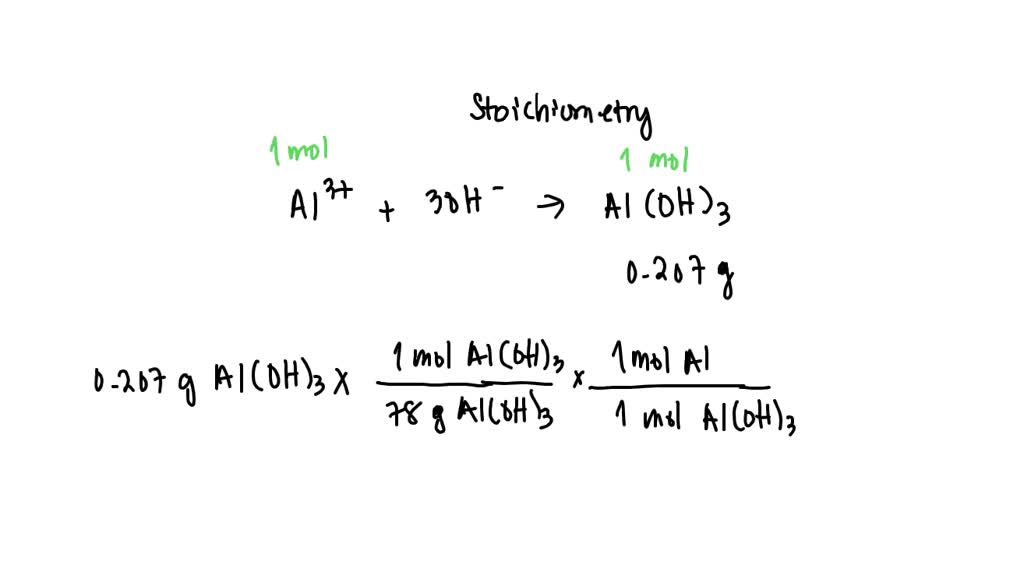 Stoichiometry
1 mol 1 mol
Al³⁺ + 3OH⁻ → Al(OH)₃
0.207 g
0.207 g Al(OH)₃ x 1 mol Al(OH)₃ / 78 g Al(OH)₃ x 1 mol Al / 1 mol Al(OH)₃